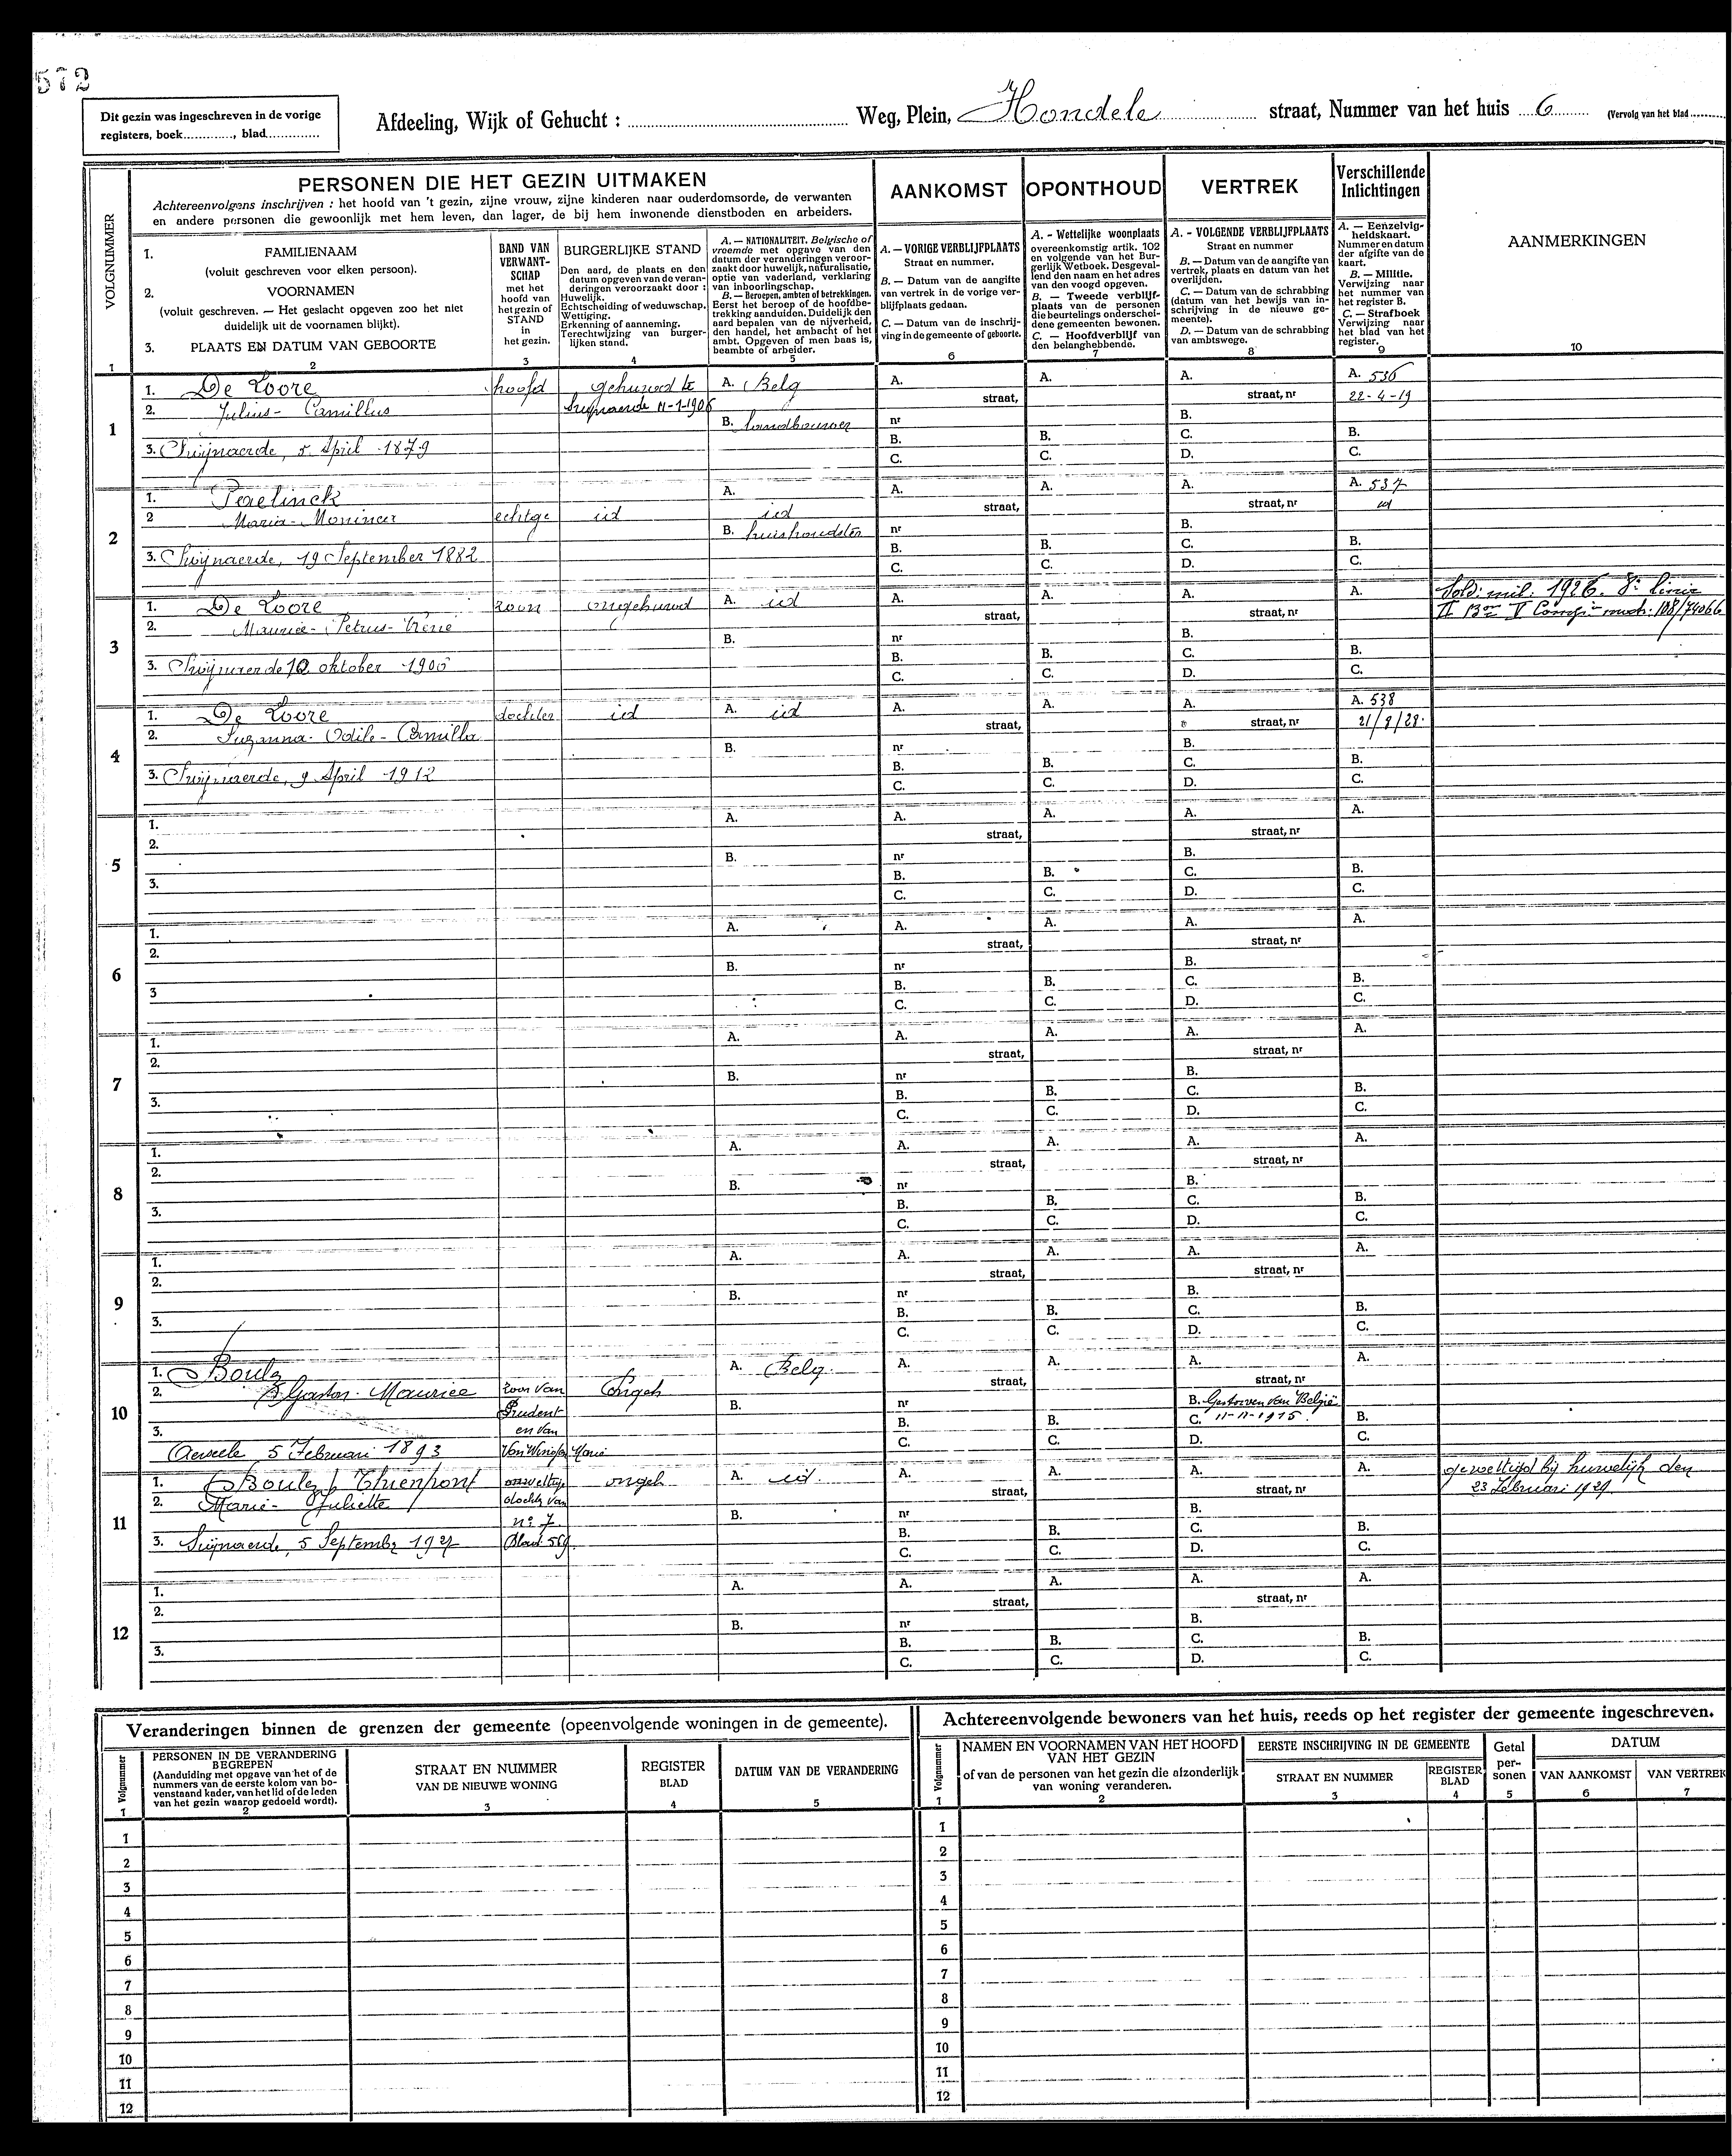 572
Dit gezin was ingeschreven in de vorige
registers, boek............, blad..............
Afdeeling, Wijk of Gehucht : .......... Weg, Plein, Hondele straat, Nummer van het huis 6 (Vervolg van het blad ..........
VOLGNUMMER
PERSONEN DIE HET GEZIN UITMAKEN
Achtereenvolgens inschrijven : het hoofd van 't gezin, zijne vrouw, zijne kinderen naar ouderdomsorde, de verwanten
en andere personen die gewoonlijk met hem leven, dan lager, de bij hem inwonende dienstboden en arbeiders.
1. FAMILIENAAM
(voluit geschreven voor elken persoon).
2. VOORNAMEN
(voluit geschreven. — Het geslacht opgeven zoo het niet
duidelijk uit de voornamen blijkt).
3. PLAATS EN DATUM VAN GEBOORTE
BAND VAN
VERWANT-
SCHAP
met het
hoofd van
het gezin of
STAND
in
het gezin.
BURGERLIJKE STAND
Den aard, de plaats en den
datum opgeven van de veran-
deringen veroorzaakt door :
Huwelijk.
Echtscheiding of weduwschap.
Wettiging.
Erkenning of aanneming.
Terechtwijzing van burger-
lijken stand.
A. — NATIONALITEIT. Belgische of
vreemde met opgave van den
datum der veranderingen veroor-
zaakt door huwelijk, naturalisatie,
optie van vaderland, verklaring
van inboorlingschap.
B. — Beroepen, ambten of betrekkingen.
Eerst het beroep of de hoofdbe-
trekking aanduiden. Duidelijk den
aard bepalen van de nijverheid,
den handel, het ambacht of het
ambt. Opgeven of men baas is,
beambte of arbeider.
AANKOMST
A. — VORIGE VERBLIJFPLAATS
Straat en nummer.
B. — Datum van de aangifte
van vertrek in de vorige ver-
blijfplaats gedaan.
C. — Datum van de inschrij-
ving in de gemeente of geboorte.
OPONTHOUD
A. - Wettelijke woonplaats
overeenkomstig artik. 102
en volgende van het Bur-
gerlijk Wetboek. Desgeval-
lend den naam en het adres
van den voogd opgeven.
B. — Tweede verblijf-
plaats van de personen
die beurtelings onderschei-
dene gemeenten bewonen.
C. — Hoofdverblijf van
den belanghebbende.
VERTREK
A. - VOLGENDE VERBLIJFPLAATS
Straat en nummer
B. — Datum van de aangifte van
vertrek, plaats en datum van het
overlijden.
C. — Datum van de schrabbing
(datum van het bewijs van in-
schrijving in de nieuwe ge-
meente).
D. — Datum van de schrabbing
van ambtswege.
Verschillende
Inlichtingen
A. — Eenzelvig-
heidskaart.
Nummer en datum
der afgifte van de
kaart.
B. — Militie.
Verwijzing naar
het nummer van
het register B.
C. — Strafboek
Verwijzing naar
het blad van het
register.
AANMERKINGEN
1 2 3 4 5 6 7 8 9 10
1
1. De Loore hoofd gehuwd te A. Belg A. A. A. A. 536
2. Julius - Camillus 11-1-1906 straat, straat, nr 22-4-19
B. landbouwer nr B.
3. Swijnaerde, 5 April 1879 B. B. C. B.
C. C. D. C.
2
1. Pelinck A. A. A. A. A. 537
2 Maria - echtge id id straat, straat, nr id
B. huishoudster nr B.
3. Swijnaerde, 19 September 1882 B. B. C. B.
C. C. D. C.
3
1. De Loore zoon ongehuwd A. id A. A. A. A. Sold. mil. 1926. 8e linie
2. Maurice - Petrus - René straat, straat, nr
B. nr B.
3. Swijnaerde 10 oktober 1906 B. B. C. B.
C. C. D. C.
4
1. De Loore dochter id A. id A. A. A. A. 538
2. Suzanna - Odile - Camilla straat, straat, nr 21/8/28.
B. nr B.
3. Swijnaerde, 9 April 1912 B. B. C. B.
C. C. D. C.
5
1. A. A. A. A. A.
2. straat, straat, nr
B. nr B.
3. B. B. C. B.
C. C. D. C.
6
1. A. A. A. A. A.
2. straat, straat, nr
B. nr B.
3 B. B. C. B.
C. C. D. C.
7
1. A. A. A. A. A.
2. straat, straat, nr
B. nr B.
3. B. B. C. B.
C. C. D. C.
8
1. A. A. A. A. A.
2. straat, straat, nr
B. nr B.
3. B. B. C. B.
C. C. D. C.
9
1. A. A. A. A. A.
2. straat, straat, nr
B. nr B.
3. B. B. C. B.
C. C. D. C.
10
1. Boulez A. Belg. A. A. A. A.
2. Gaston - Maurice zoon van Ongeh straat, straat, nr
Prudent B. nr B. Gestorven van België
3. en van B. B. C. 11-11-1915. B.
Aerseele 5 Februari 1893 Marie C. C. D. C.
11
1. Boulez Thienpont onwettige ongeh A. id. A. A. A. A. gewettigd bij huwelijk den
2. Marie - Juliette dochter van straat, straat, nr 23 Februari 1929.
n° 7 B. nr B.
3. Swijnaerde, 5 September 1927 Blad: 569. B. B. C. B.
C. C. D. C.
12
1. A. A. A. A. A.
2. straat, straat, nr
B. nr B.
3. B. B. C. B.
C. C. D. C.
Veranderingen binnen de grenzen der gemeente (opeenvolgende woningen in de gemeente).
Volgnummer
PERSONEN IN DE VERANDERING
BEGREPEN
(Aanduiding met opgave van het of de
nummers van de eerste kolom van bo-
venstaand kader, van het lid of de leden
van het gezin waarop gedoeld wordt).
STRAAT EN NUMMER
VAN DE NIEUWE WONING
REGISTER
BLAD
DATUM VAN DE VERANDERING
1 2 3 4 5
1
2
3
4
5
6
7
8
9
10
11
12
Achtereenvolgende bewoners van het huis, reeds op het register der gemeente ingeschreven.
Volgnummer
NAMEN EN VOORNAMEN VAN HET HOOFD
VAN HET GEZIN
of van de personen van het gezin die afzonderlijk
van woning veranderen.
EERSTE INSCHRIJVING IN DE GEMEENTE
STRAAT EN NUMMER
REGISTER
BLAD
Getal
per-
sonen
DATUM
VAN AANKOMST
VAN VERTREK
1 2 3 4 5 6 7
1
2
3
4
5
6
7
8
9
10
11
12